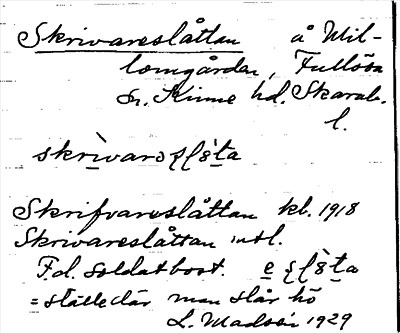 Skrivareslåttan å Mil-
lomgården, Fullösa
sn. Kinne hd. Skarab.
l.
skrìvarə
Skrifvareslåttan kb. 1918
Skrivareslåttan intl.
F.d. soldatbost. e
= ställe där man slår hö
L. Madsén 1929